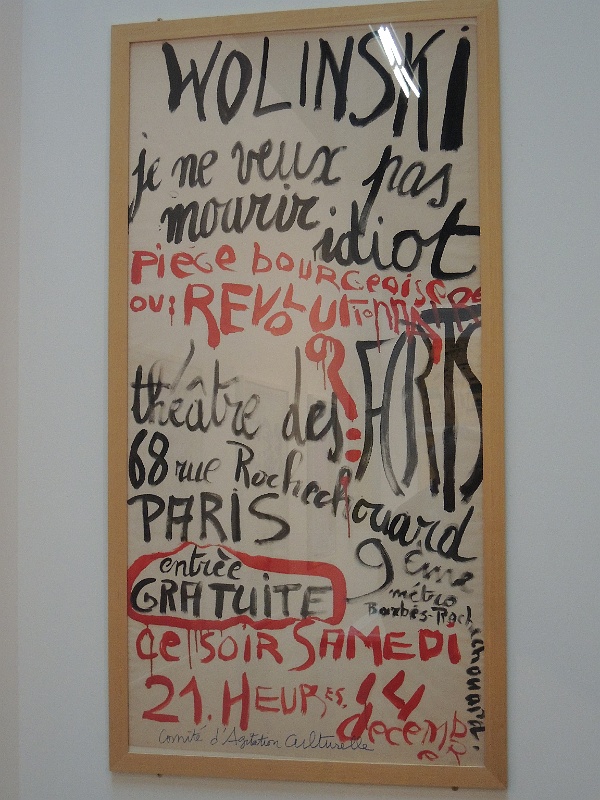 WOLINSKI
je ne veux pas
mourir idiot
piece bourgeoise
ou: REVOLUTIONNAIRE
?
théâtre des FORTS
68 rue Rochechouard
PARIS 9eme
entrée
GRATUITE
métro
Barbès-Rochechouard.
ce soir SAMEDI
21. HEURES. 14
decembre
Comité d'Agitation Culturelle